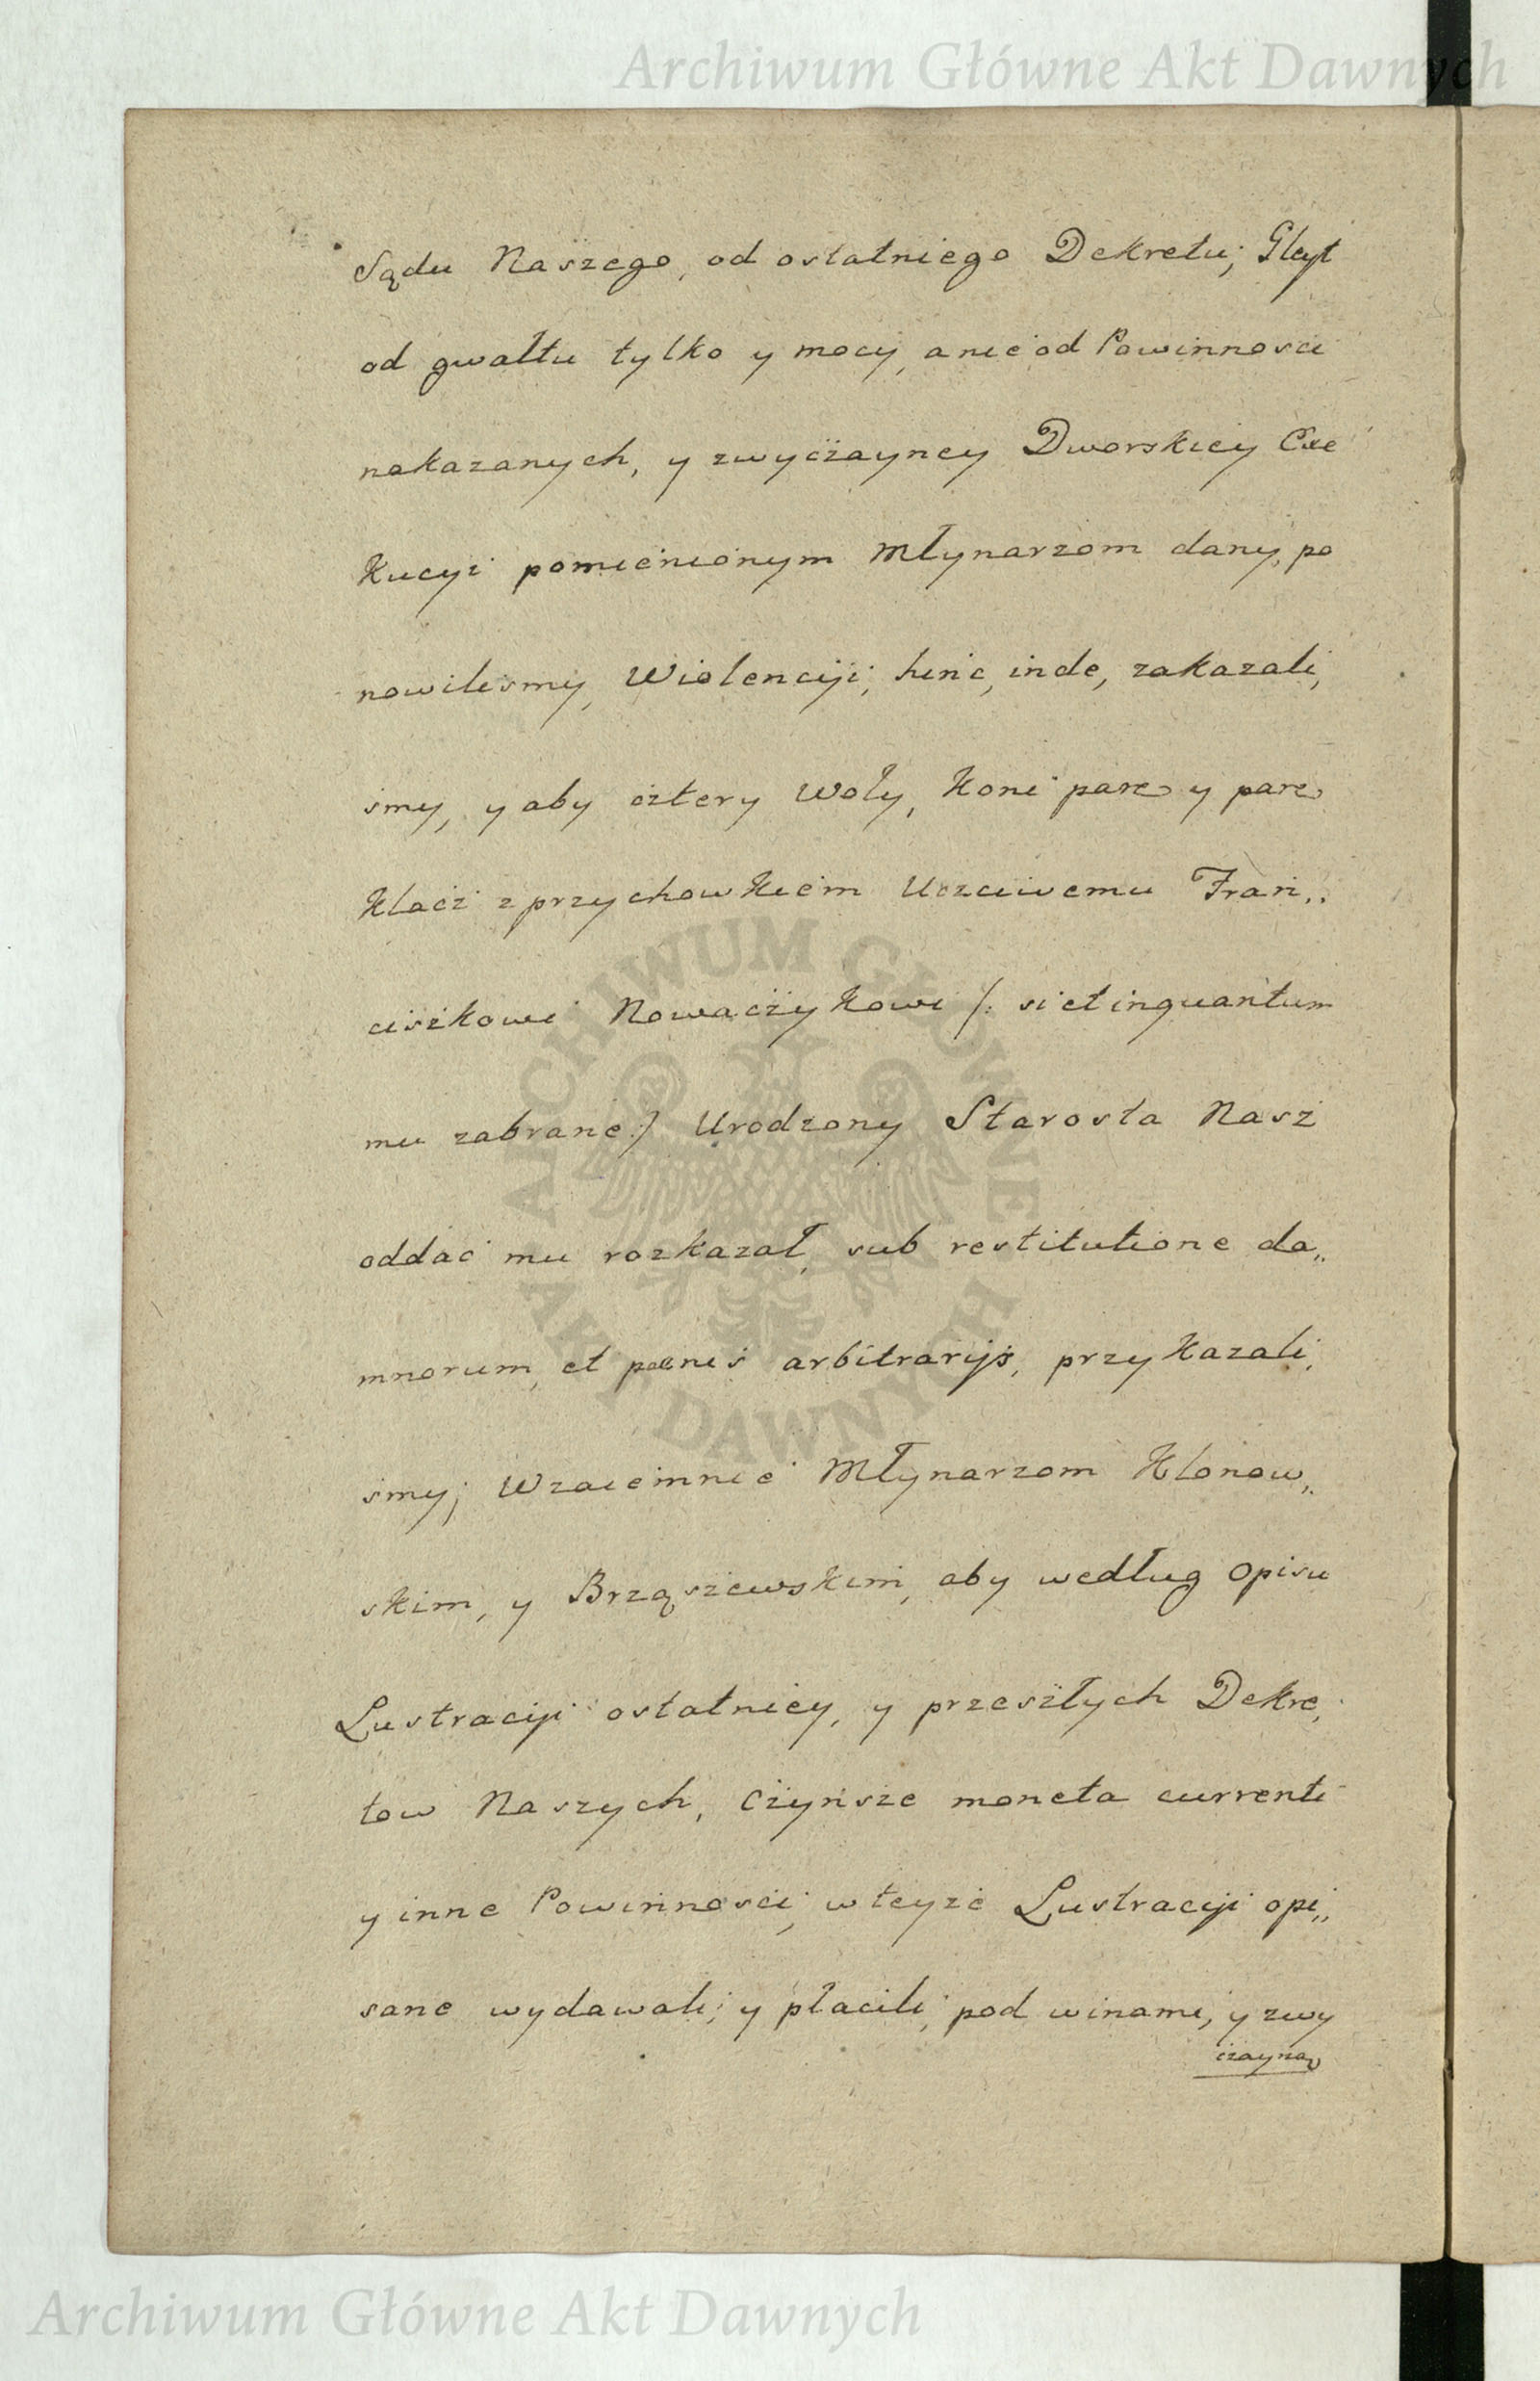 Archiwum Główne Akt Dawnych
Sądu Naszego, od ostatniego Dekretu; Gleyt
od gwałtu tylko y mocy, a nie od Powinnosci
nakazanych, y zwyczayney Dworskiey Exe
kucyi pomienionym Młynarzom dany, po
nowilismy, Wiolencyi, hinc, inde, zakazali,
smy, y aby cztery Woły, Koni parę y parę
Klacz z przychowkiem Uczciwemu Fran„
ciszkowi Nowaczykowi /: si et inquantum
mu zabrane :/ Urodzony Starosta Nasz
oddać mu rozkazał, sub restitutione da„
mnorum, et paenis arbitrarijs, przykazali,
smy; Wzaiemnie Młynarzom Klonow„
skim, y Brząszewskim, aby według Opisu
Lustracyi ostatniey, y przeszłych Dekre,
tow Naszych, Czynsze moneta currenti
y inne Powinnosci, w teyże Lustracyi opi„
sane wydawali; y płacili, pod winami, y zwy
czayną
ARCHIWUM GŁÓWNE AKT DAWNYCH
Archiwum Główne Akt Dawnych